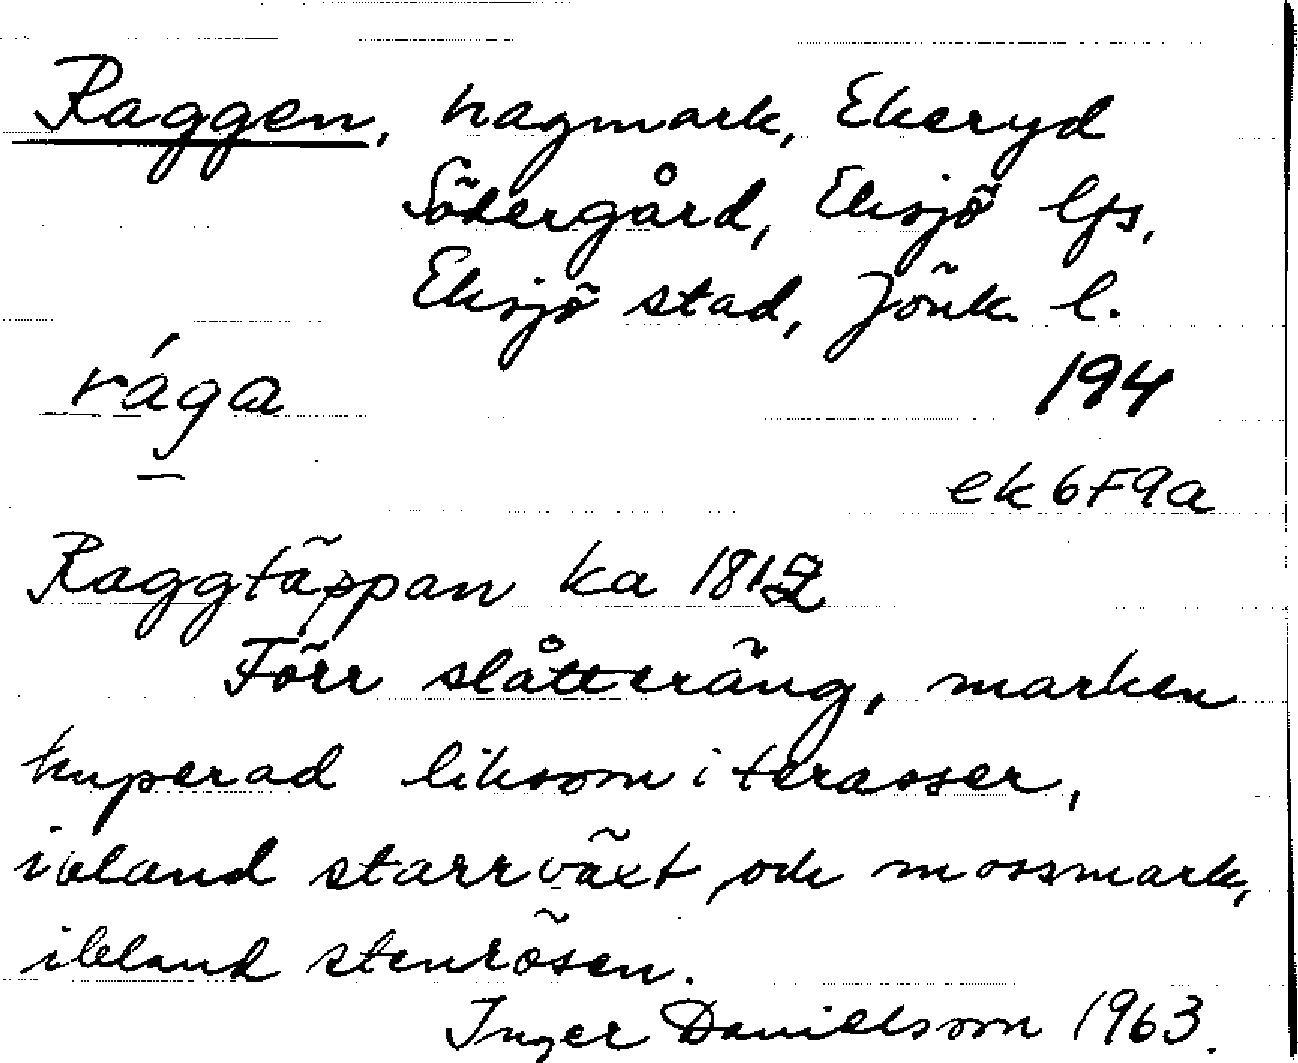 Raggen, hagmark, Ekeryd
Södergård, Eksjö lfs,
Eksjö stad, Jönk. l.
rága
194
ek 6F9a
Raggtäppan ka 1812
Förr slåtteräng, marken
kuperad liksom i terasser,
ibland starrväxt och mossmark,
ibland stenrösen.
Inger Danielsson 1963.